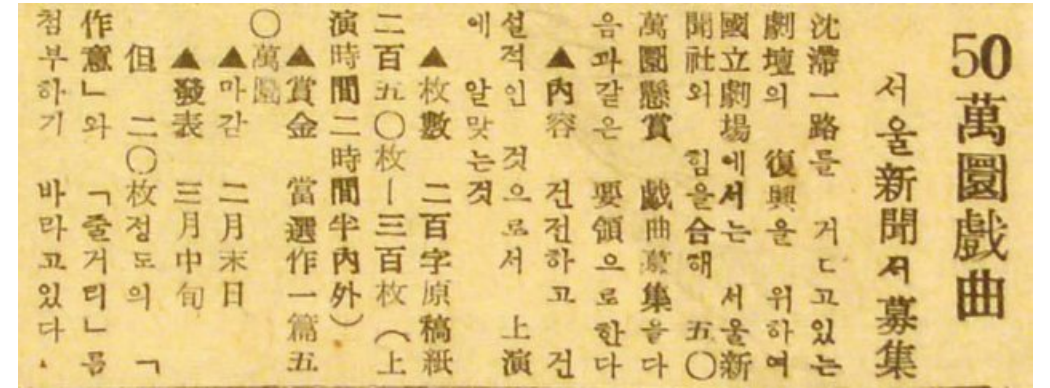 50萬圜戱曲
서울新聞서募集
沈滯一路를 거ㄷ고있는
劇壇의 復興을 위하여
國立劇場에서는 서울新
聞社와 힘을合해 五〇
萬圜懸賞 戱曲募集을다
음과같은 要領으로한다
▲內容 건전하고 건
설적인 것으로서 上演
에 알맞는것
▲枚數 二百字原稿紙
二百五〇枚—三百枚(上
演時間二時間半內外)
▲賞金 當選作一篇五
〇萬圜
▲마감 二月末日
▲發表 三月中旬
但 二〇枚정도의 「
作意」와 「줄거리」를
첨부하기 바라고있다.